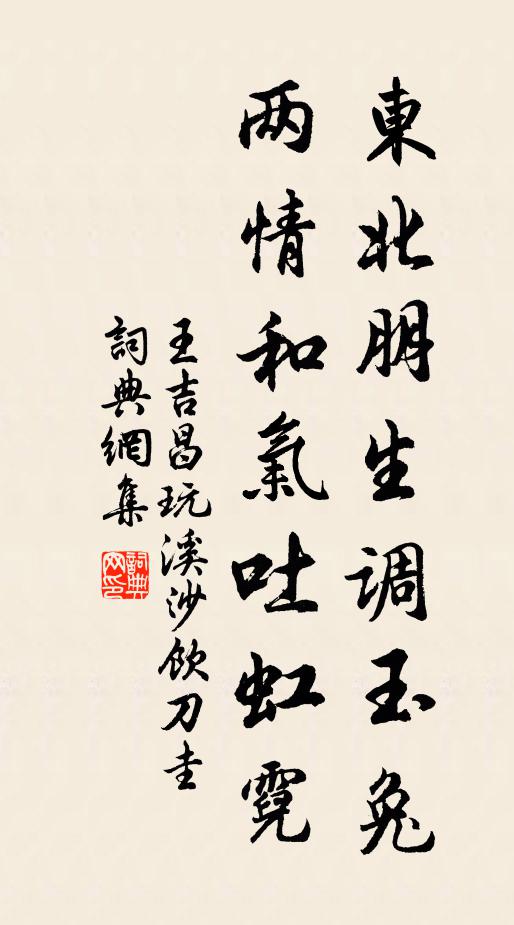 東北朋生调玉兔
两情和氣吐虹霓
王吉昌玩溪沙飲刀圭
詞典網集
詞典网印